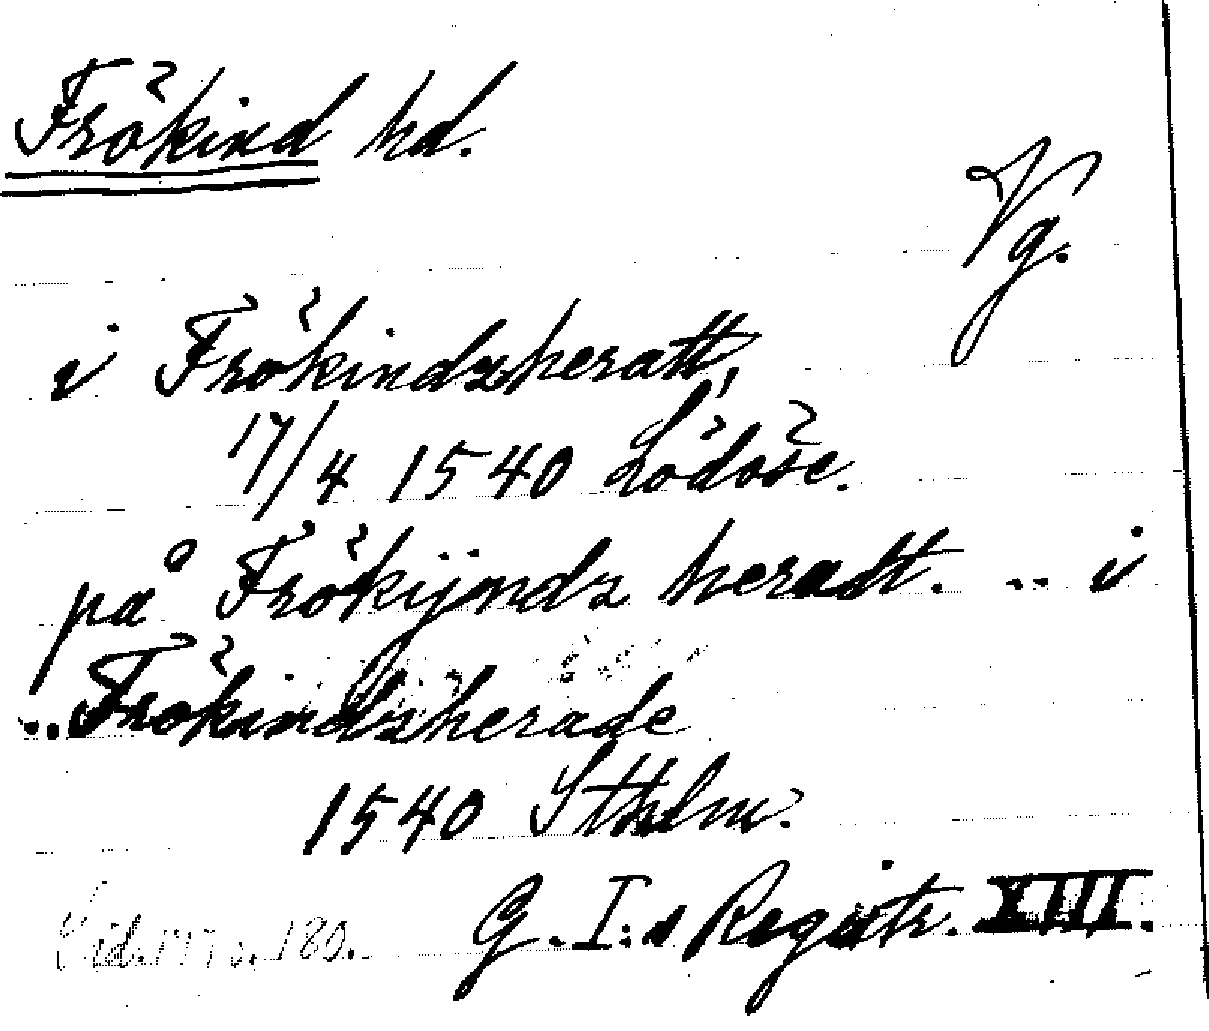 Frökind hd.
Vg.
i Frökindzheratt,
17/4 1540 Lödöse.
på Frökÿndz heradt. .. i
..Frökindzherade
1540 Sthlm.
G. I:s Registr. XIII.
180.